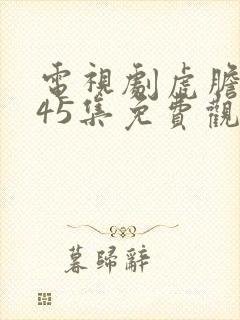 電視劇虎膽
45集免費觀
暮歸辭